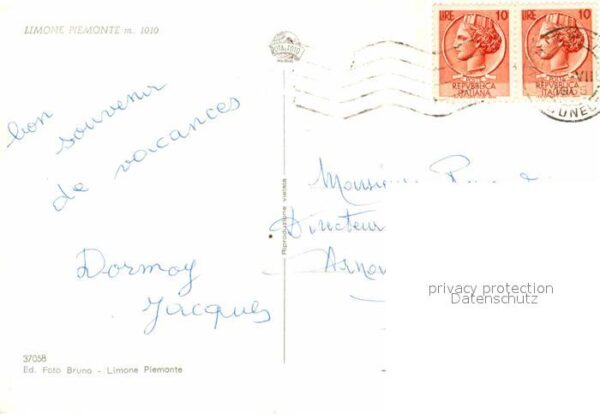 LIMONE PIEMONTE m. 1010
bon souvenir
de vacances
Dormoy
Jacques
37058
Ed. Foto Bruno - Limone Piemonte
Riproduzione vietata
LIRE 10
POSTE
REPVBBLICA
ITALIANA
LIRE 10
POSTE
REPVBBLICA
ITALIANA
VII
CUNEO
Monsieur
Directeur
privacy protection
Datenschutz